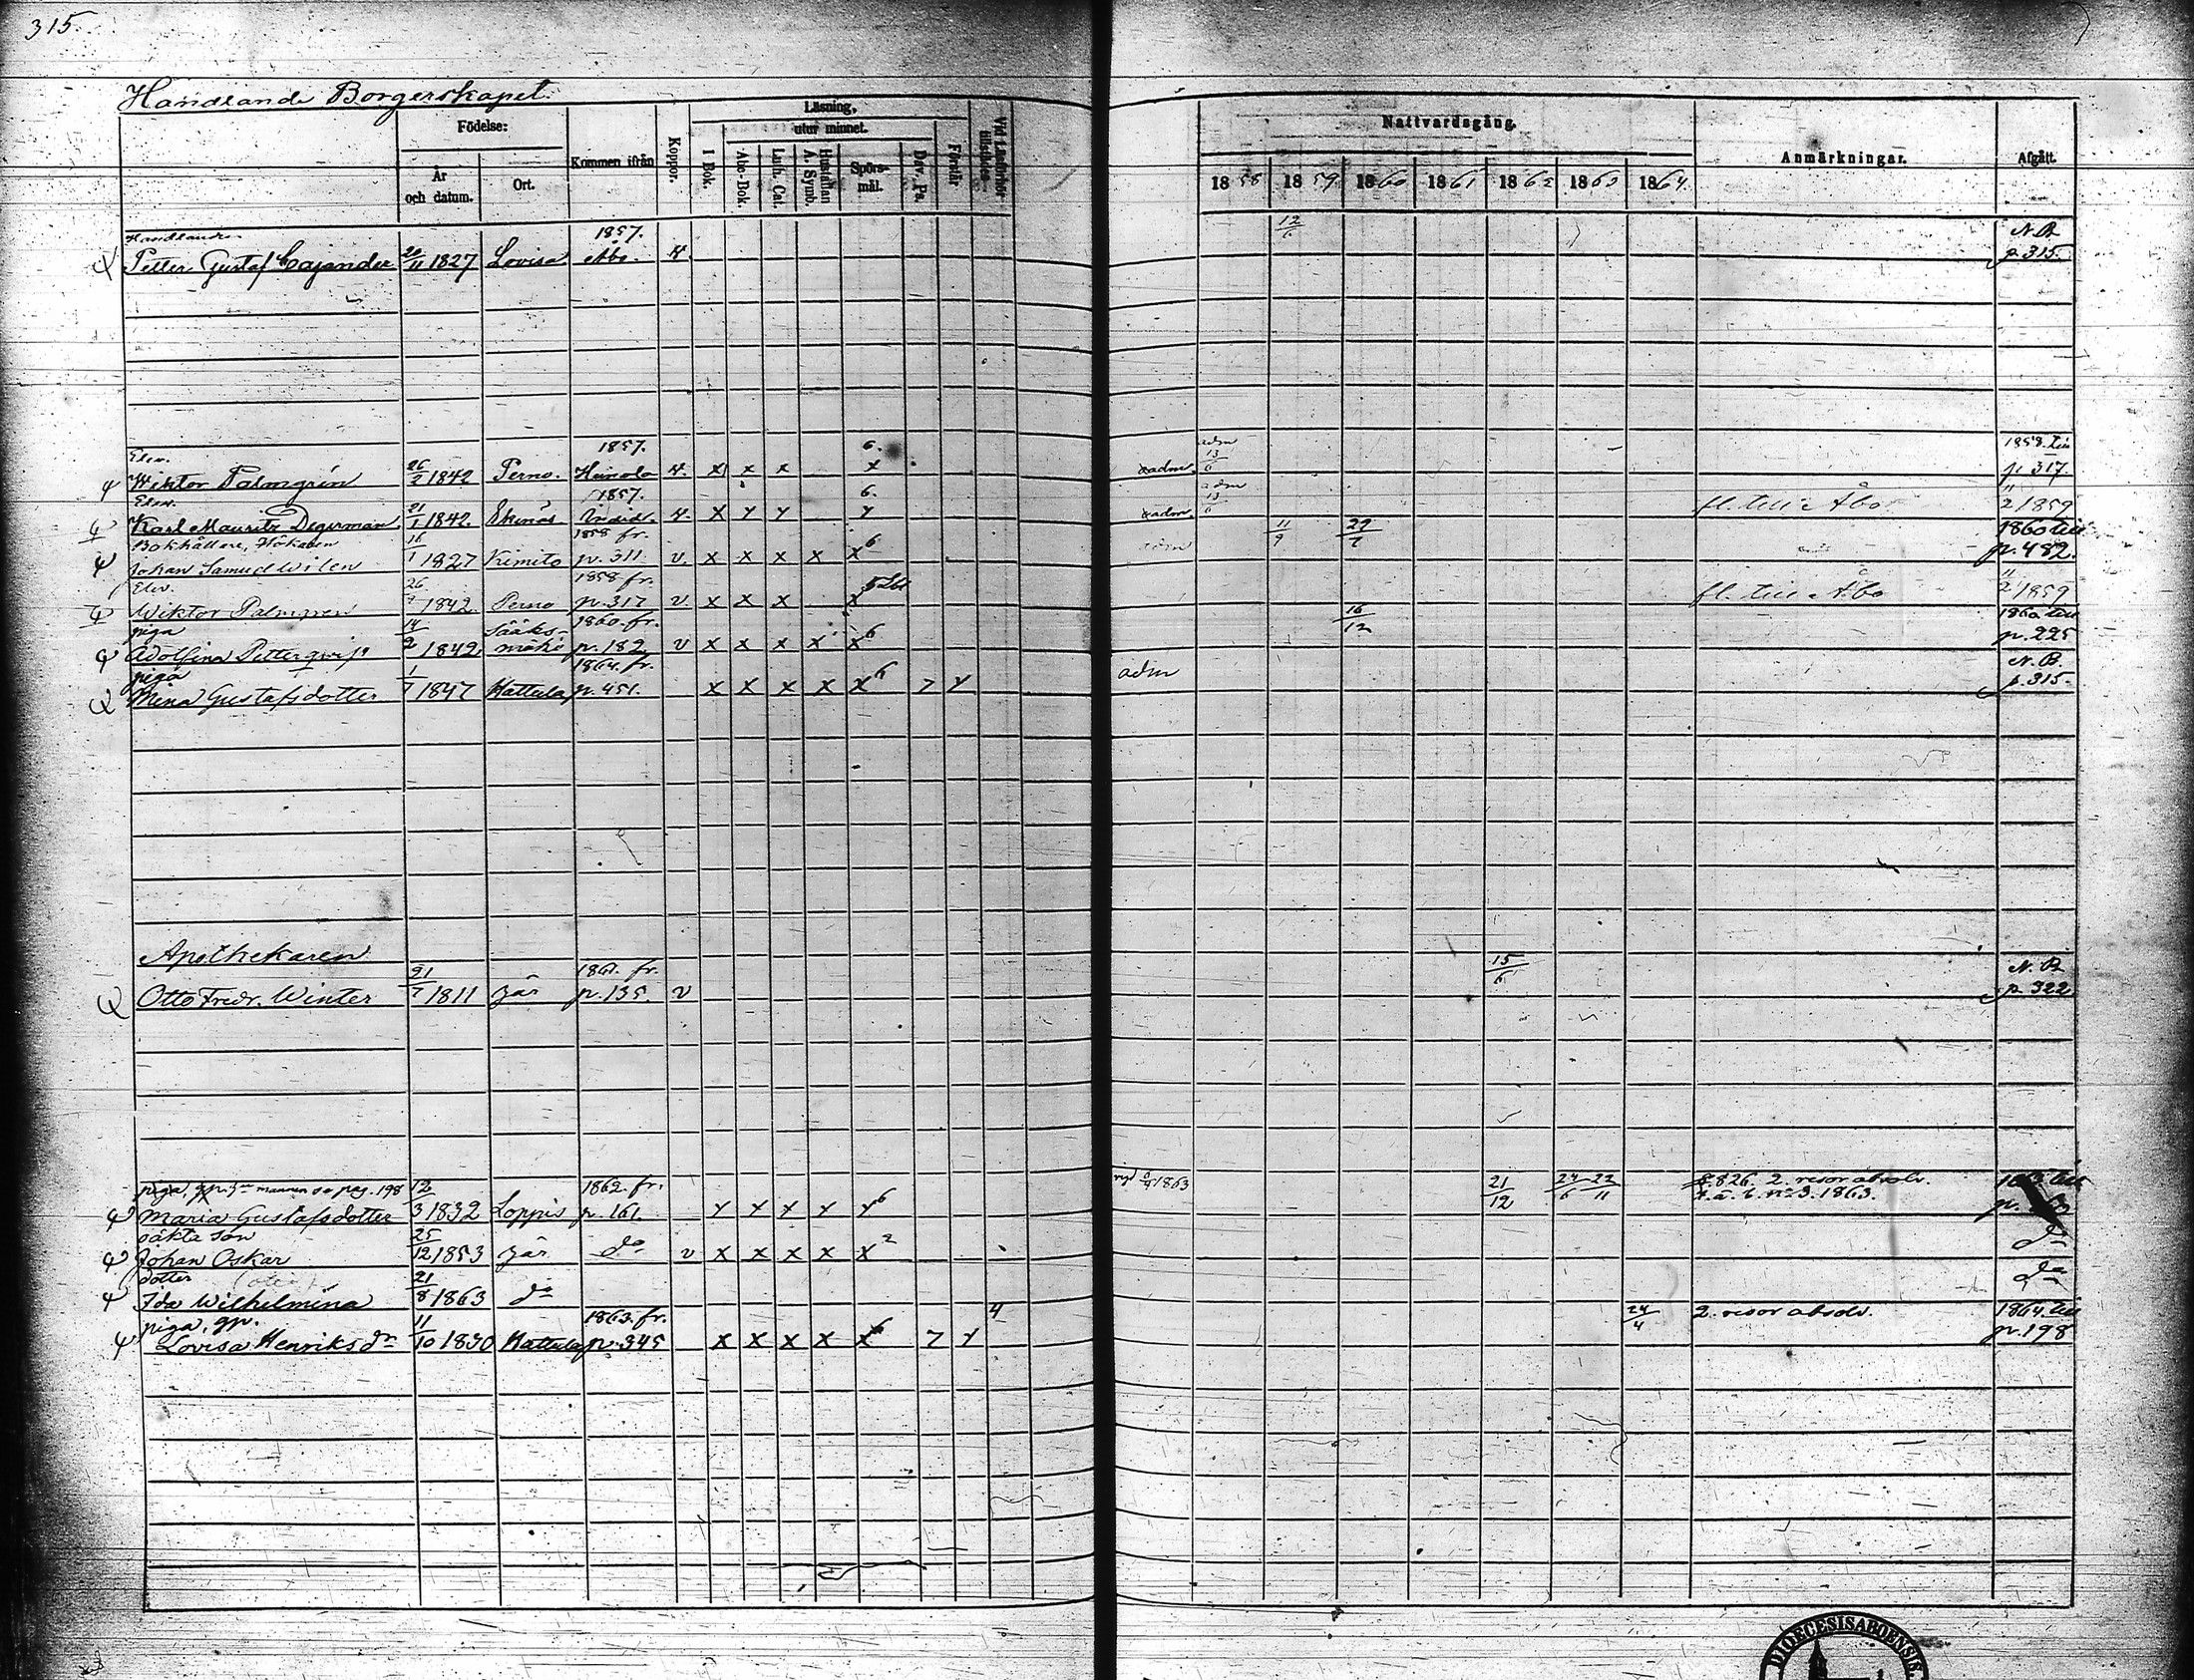 315.
Handlande Borgerskapet.
Födelse:
År och datum.
Ort.
Kommen ifrån
Koppor.
Läsning,
utur minnet.
I Bok.
Abc-Bok.
Luth. Cat.
Hustaflan A. Symb.
Spörs-mål.
Dav. Ps.
Förstår
Vid Läsförhör tillstädes
Nattvardsgång.
1858 1859 1860 1861 1862 1863 1864
Anmärkningar.
Afgått.
Handlanden 1857. 12/6 N.B.
Petter Gustaf Cajander 20/11 1827 Lovisa Åbo. p. 315.
Elev. 1857. 6. adm 13/6 1858 till
Wiktor Palmgrén 26/2 1842 Perno. Heinola x x x x adm. p. 317.
Elev. 1857. 6. adm 13/6 11
Karl Mauritz Degerman 21/1 1842. Ekenäs x y y y adm. fl. till Åbo 2 1859
Bokhållare, Hökaren 16 1858 fr. 6 11/9 29/7 1860 till
Johan Samuel Wilen 1 1827 Kimito p. 311. v. x x x x x p. 482.
Elev. 26 1858 fr. 11
Wiktor Palmgren 1842. Perno p. 317 v. x x x x fl. till Åbo 2 1859
piga 14 Sääks- 1860. fr. 6 16/12 1860 till
Adolfina Petterqvist 2 1842, mäki p. 182 v x x x x x p. 225
piga 1 1864. fr. 6 adm N.B.
Mina Gustafsdotter 7 1847 Hattula p. 451. x x x x x 7 y p. 315.
Apothekaren
21 1861. fr. 15/6 N.B.
Otto Fredr. Winter 7 1811 här p. 135. v p. 322
piga, gp. mannen se pag. 198 12 1862. fr. 1863 21/12 24/6 22/11 2. resor absolv. 1863 till
Maria Gustafsdotter 3 1832 Loppis p. 161. y y y y y 6 no 3. 1863.
oäkta son 25
Johan Oskar 12 1853 här do v x x x x x 2 do
dotter 21
Ida Wilhelmina 8 1863 do do
piga, gp. 11 1863. fr. 6 4 24/4 2. resor absolv. 1864 till
Lovisa Henriksdr 10 1830 Hattula p. 345 x x x x x 7 y p. 198
DIOECESIS ABOENSIS